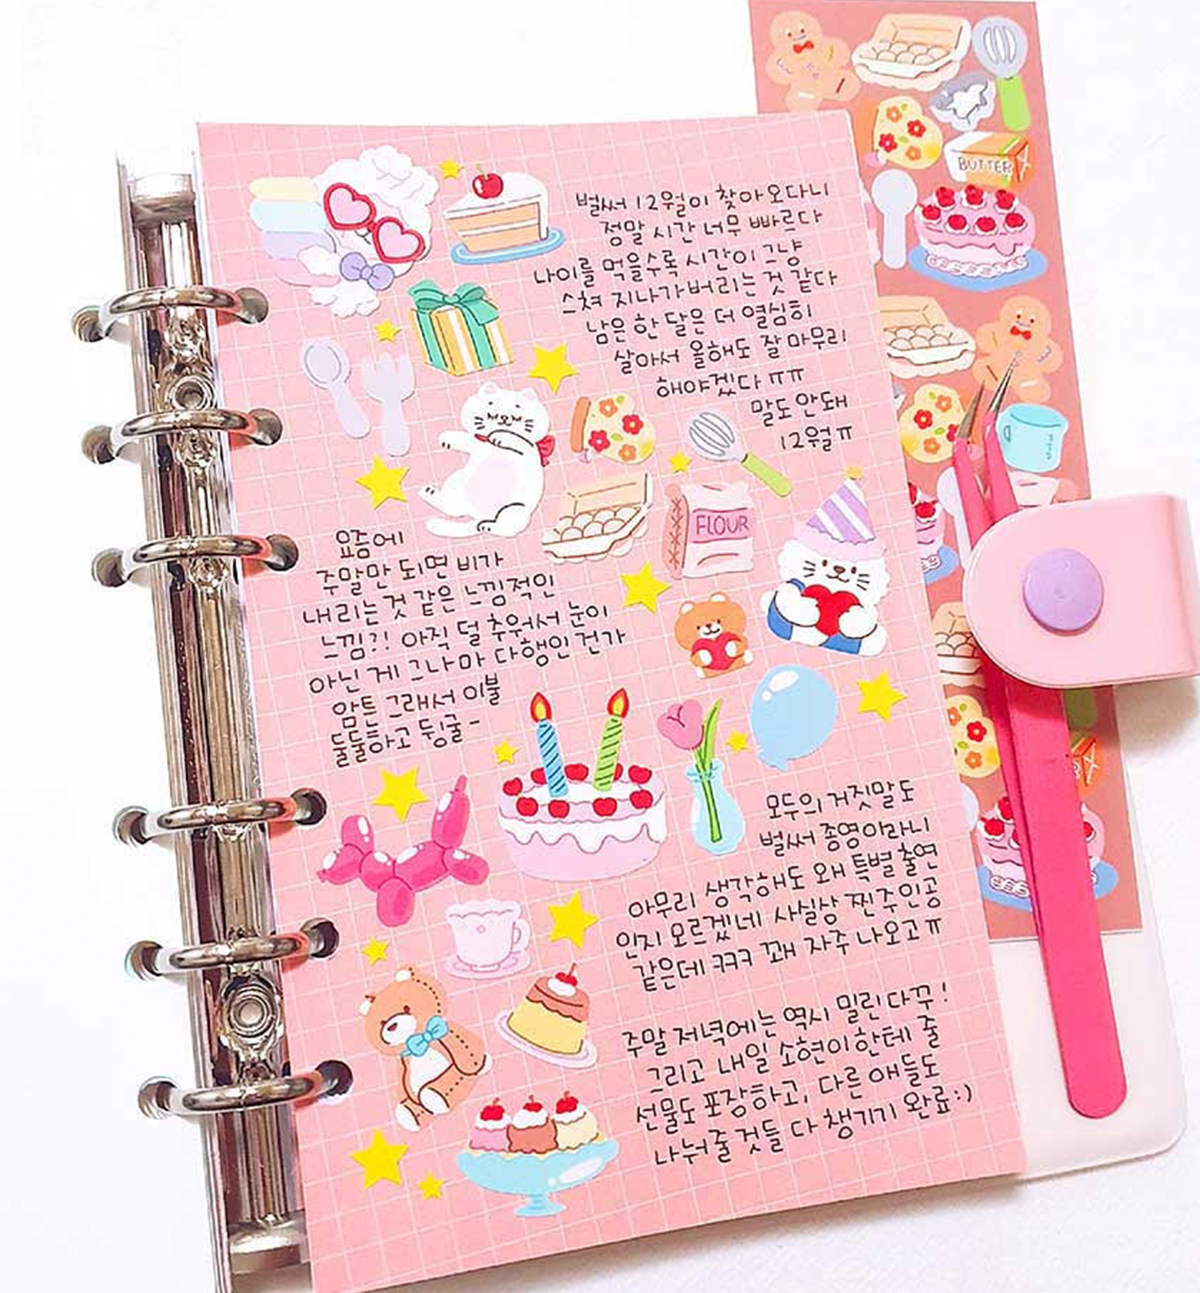 벌써 12월이 찾아오다니
정말 시간 너무 빠르다
나이를 먹을수록 시간이 그냥
스쳐 지나가버리는 것 같다
남은 한 달은 더 열심히
살아서 올해도 잘 마무리
해야겠다 ㅠㅠ
말도 안돼
12월ㅠ
FLOUR
요즘에
주말만 되면 비가
내리는 것 같은 느낌적인
느낌?! 아직 덜 추워서 눈이
아닌 게 그나마 다행인건가
암튼 그래서 이불
둘둘하고 뒹굴-
모두의 거짓말도
벌써 종영이라니
아무리 생각해도 왜 특별출연
인지 모르겠네 사실상 찐주인공
같은데 ㅋㅋㅋ 꽤 자주 나오고ㅠ
주말 저녁에는 역시 밀린다꾸!
그리고 내일 소현이한테 줄
선물도 포장하고, 다른 애들도
나눠줄 것들 다 챙기기 완료:)
BUTTER